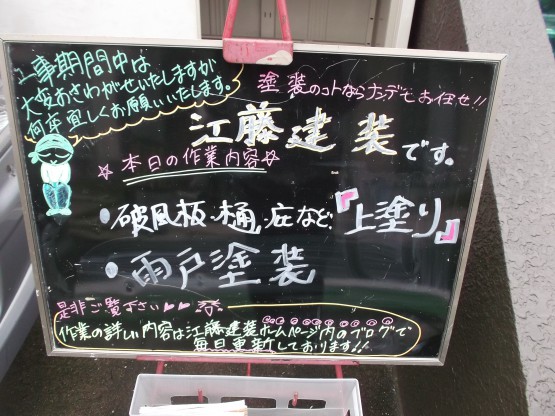 工事期間中は
大変おさわがせいたしますが
何卒宜しくお願いいたします。
塗装のコトならナンデもお任せ!!
江藤建装です。
☆本日の作業内容☆
・破風板・樋、庇など『上塗り』
・雨戸塗装
是非ご覧下さい
作業の詳しい内容は江藤建装ホームページ内のブログで
毎日更新しております!!